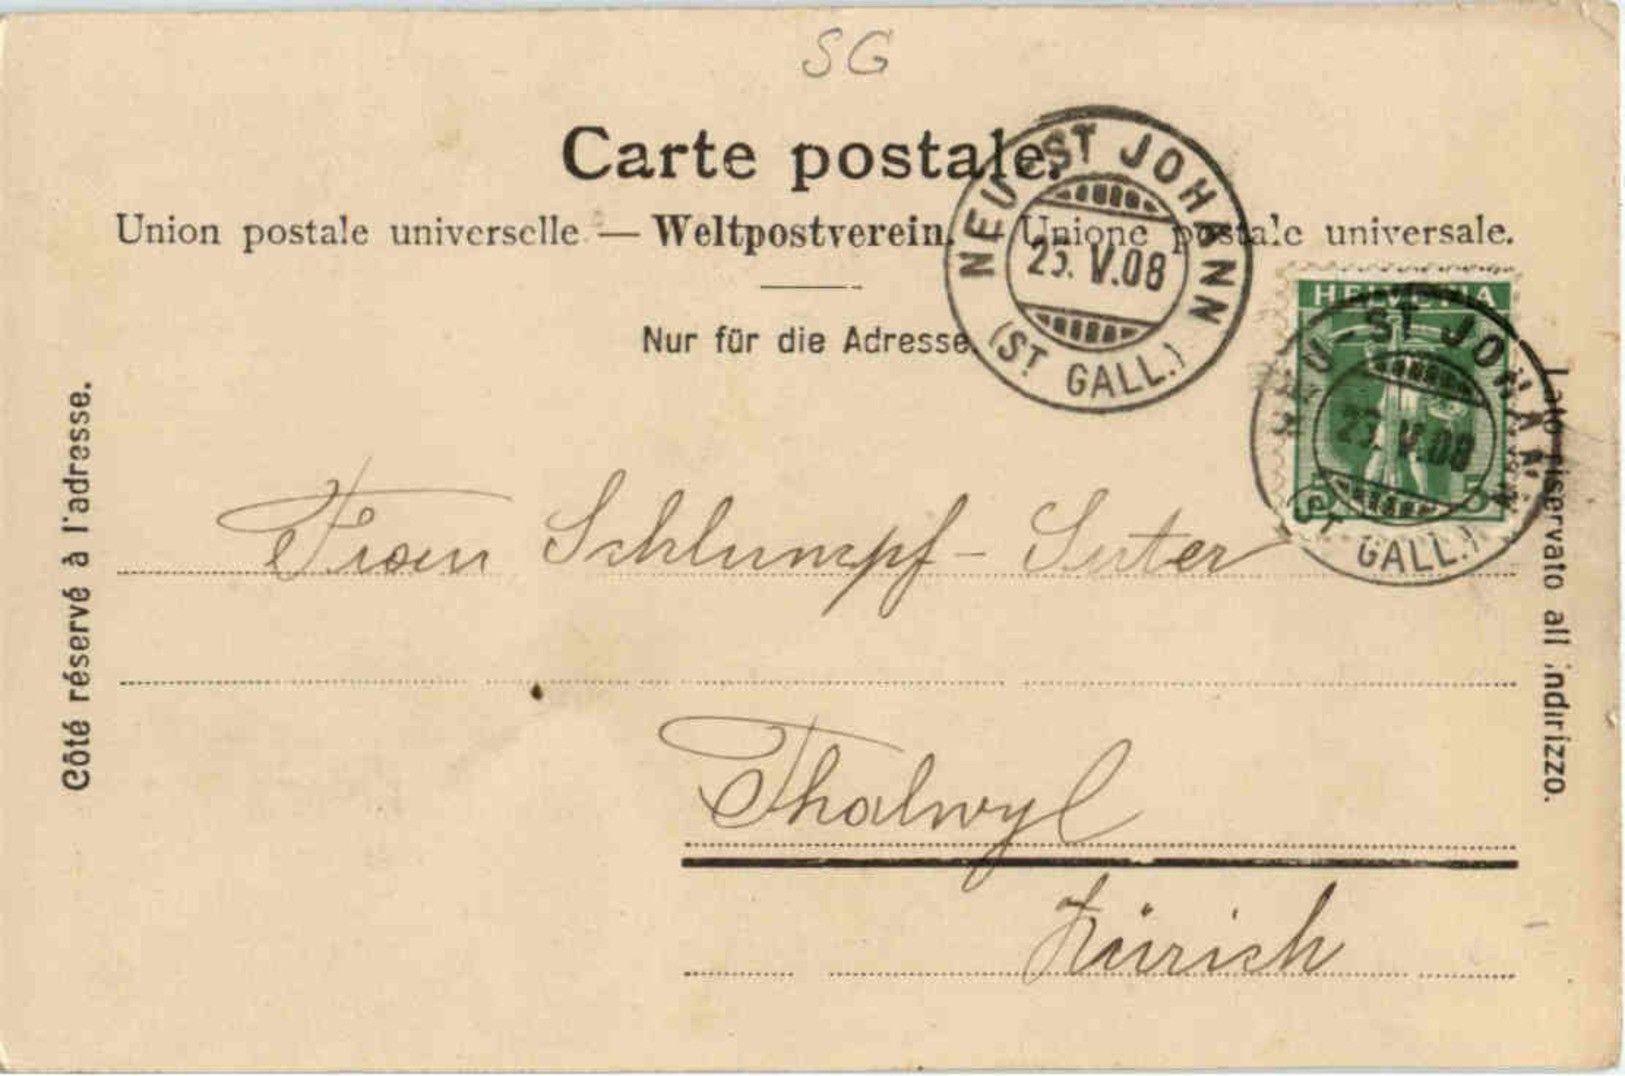 SG
Carte postale.
Union postale universelle — Weltpostverein. Unione postale universale.
Nur für die Adresse.
NEU-ST JOHANN
V.08
(ST GALL.)
HELVETIA
5 5
NEU-ST JOHANN
V.08
(ST GALL.)
Côté réservé à l'adresse.
Lato riservato all indirizzo.
Frau Schlumpf-Suter
Thalwyl
Zürich